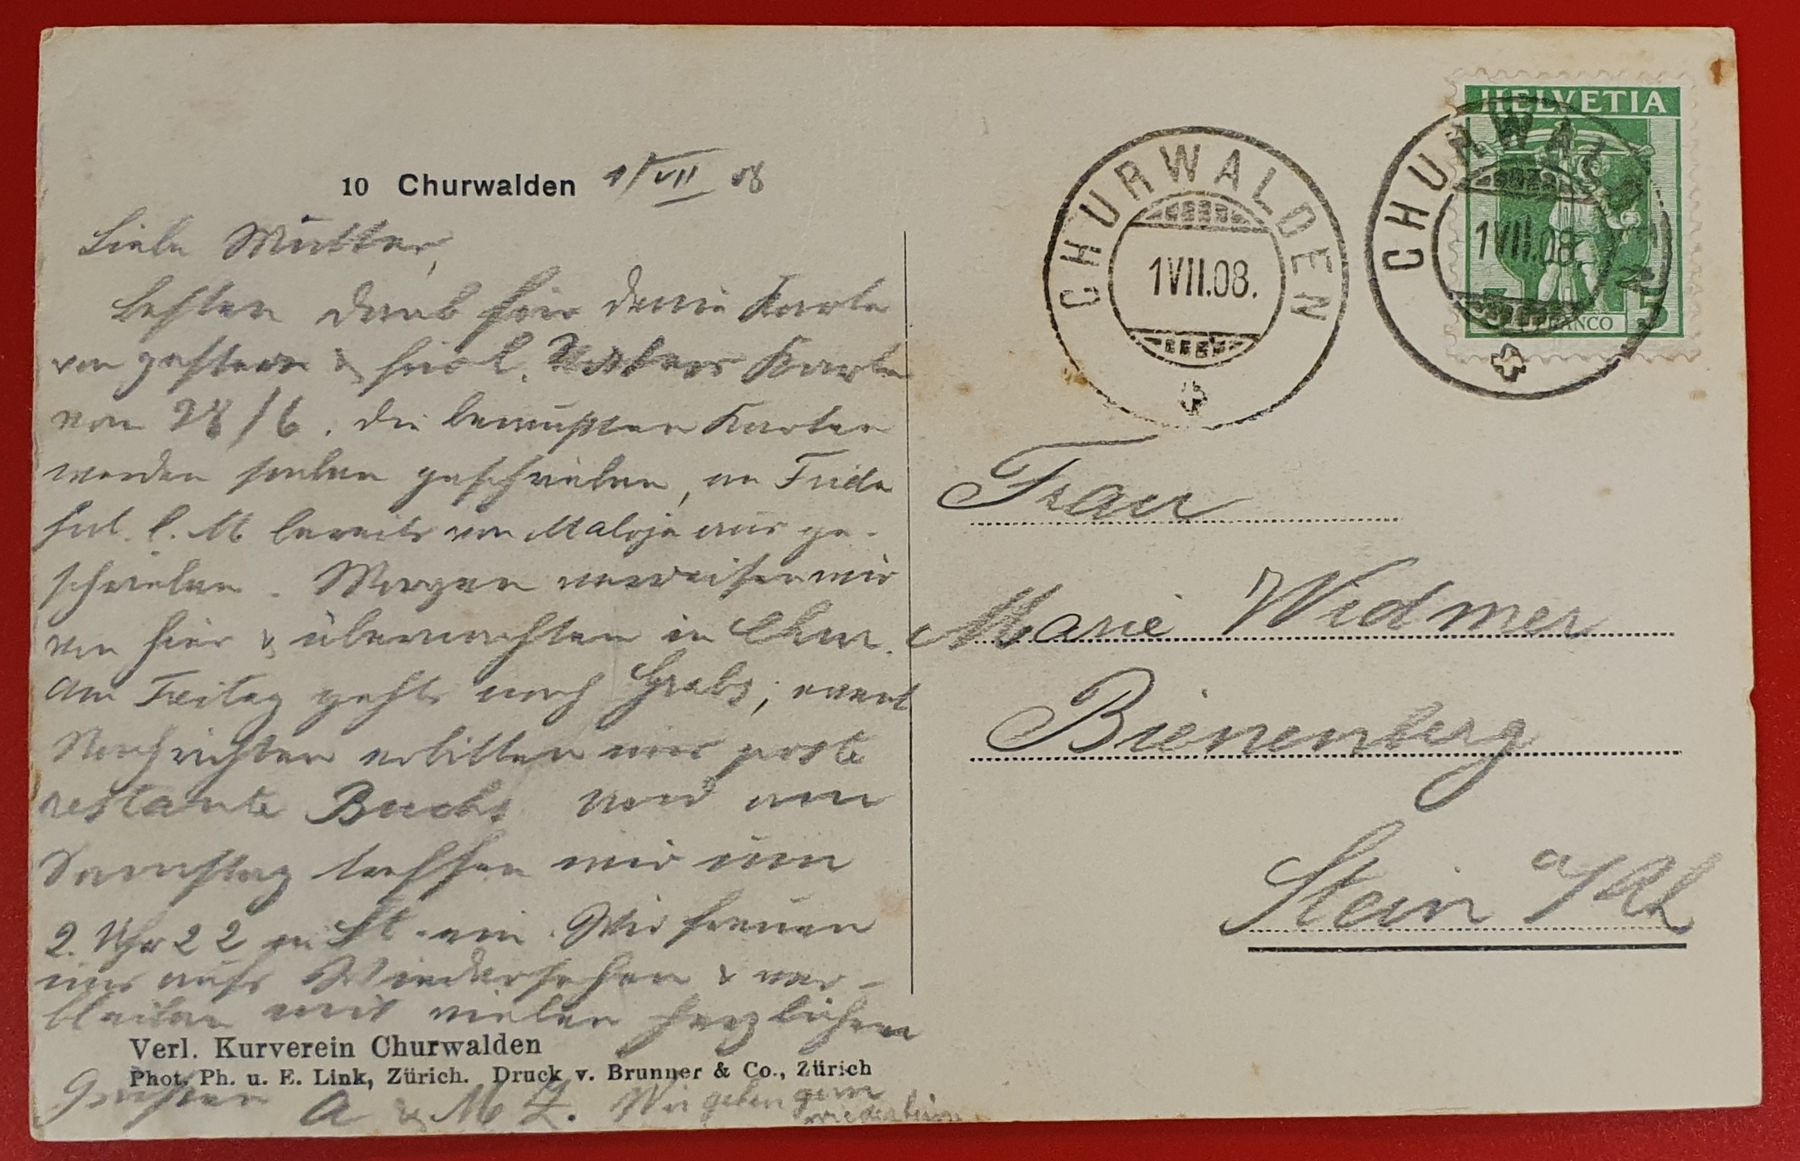 10 Churwalden 1/VII 08
Liebe Mutter,
besten Dank für deine Karte
von gestern & für l. Vaters Karte
vom 28/6. Die bewußten Karten
werden soeben geschrieben, an Frida
hat l. M bereits von Maloja aus ge-
schrieben. Morgen verreisen wir
von hier & übernachten in Chur.
Am Freitag gehts nach Grabs, event
Nachrichten erbitten wir poste
restante Buchs und am
Samstag treffen wir um
2. Uhr 22 in St. ein. Wir freuen
uns aufs Wiedersehen & ver-
bleiben mit vielen herzlichen
Verl. Kurverein Churwalden
Phot. Ph. u. E. Link, Zürich. Druck v. Brunner & Co., Zürich
Grüssen A & M Z. Wir gehen gern
wieder heim
CHURWALDEN
1VII.08.
HELVETIA
CHURWALDEN
1VII.08.
5 FRANCO 5
Frau
Marie Widmer
Bienenberg
Stein a/Rh